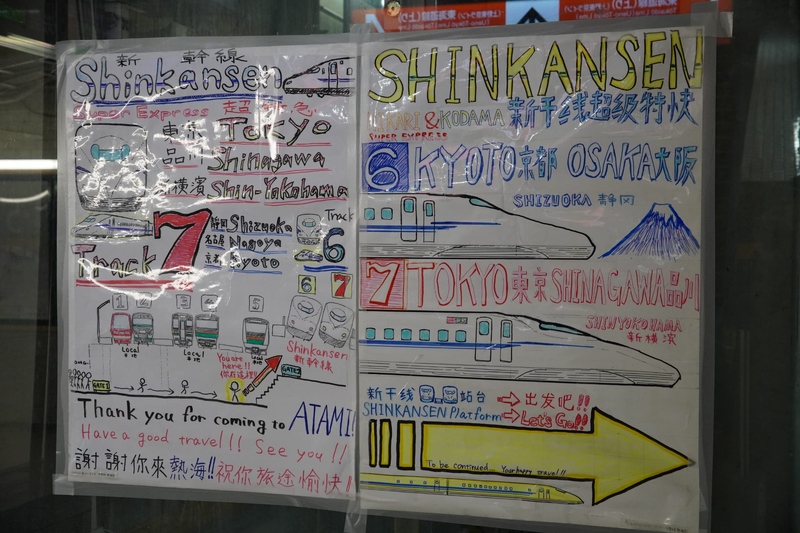 新 幹 線
Shinkansen
Super Express 超特急
東京 Tokyo
品川 Shinagawa
新横濱 Shin-Yokohama
Track 7
静岡 Shizuoka
名古屋 Nagoya
京都 Kyoto
Track 6
6 7
1 2 3 4 5
Local
Local
Shinkansen
新幹線
You are here!!
你在这里!!
GATE
GATE
Thank you for coming to ATAMI!
Have a good travel!! See you!!
謝謝你来熱海!! 祝你旅途愉快!!
SHINKANSEN
HIKARI & KODAMA 新干线超级特快
SUPER EXPRESS
6 KYOTO京都 OSAKA大阪
SHIZUOKA 静冈
7 TOKYO東京 SHINAGAWA品川
SHINYOKOHAMA
新横滨
新干线 站台 → 出发吧!!
SHINKANSEN Platform → Let's Go!!
To be continued... Your happy travel!!